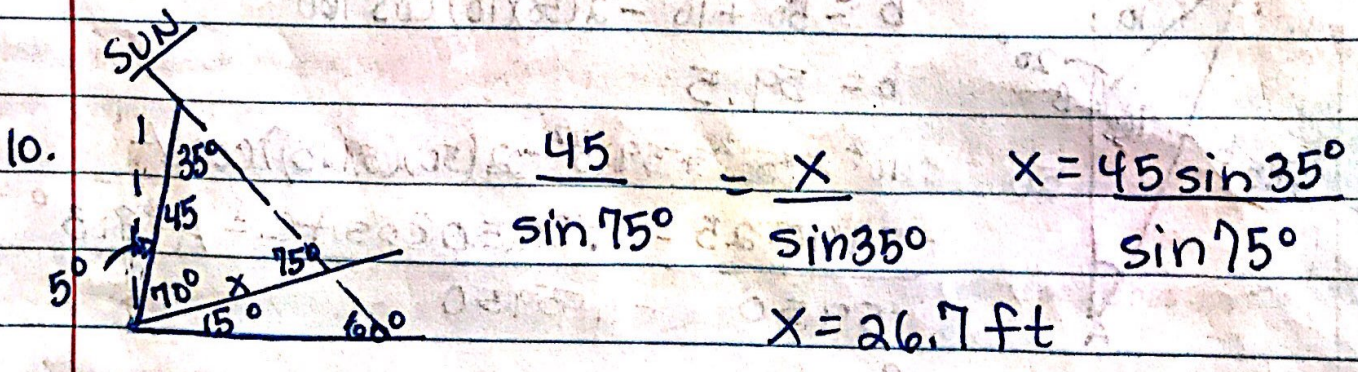 SUN
10.
35°
45
5°
70°
x
75°
15°
60°
45 / sin 75° = x / sin 35°
x = 45 sin 35° / sin 75°
x = 26.7 ft